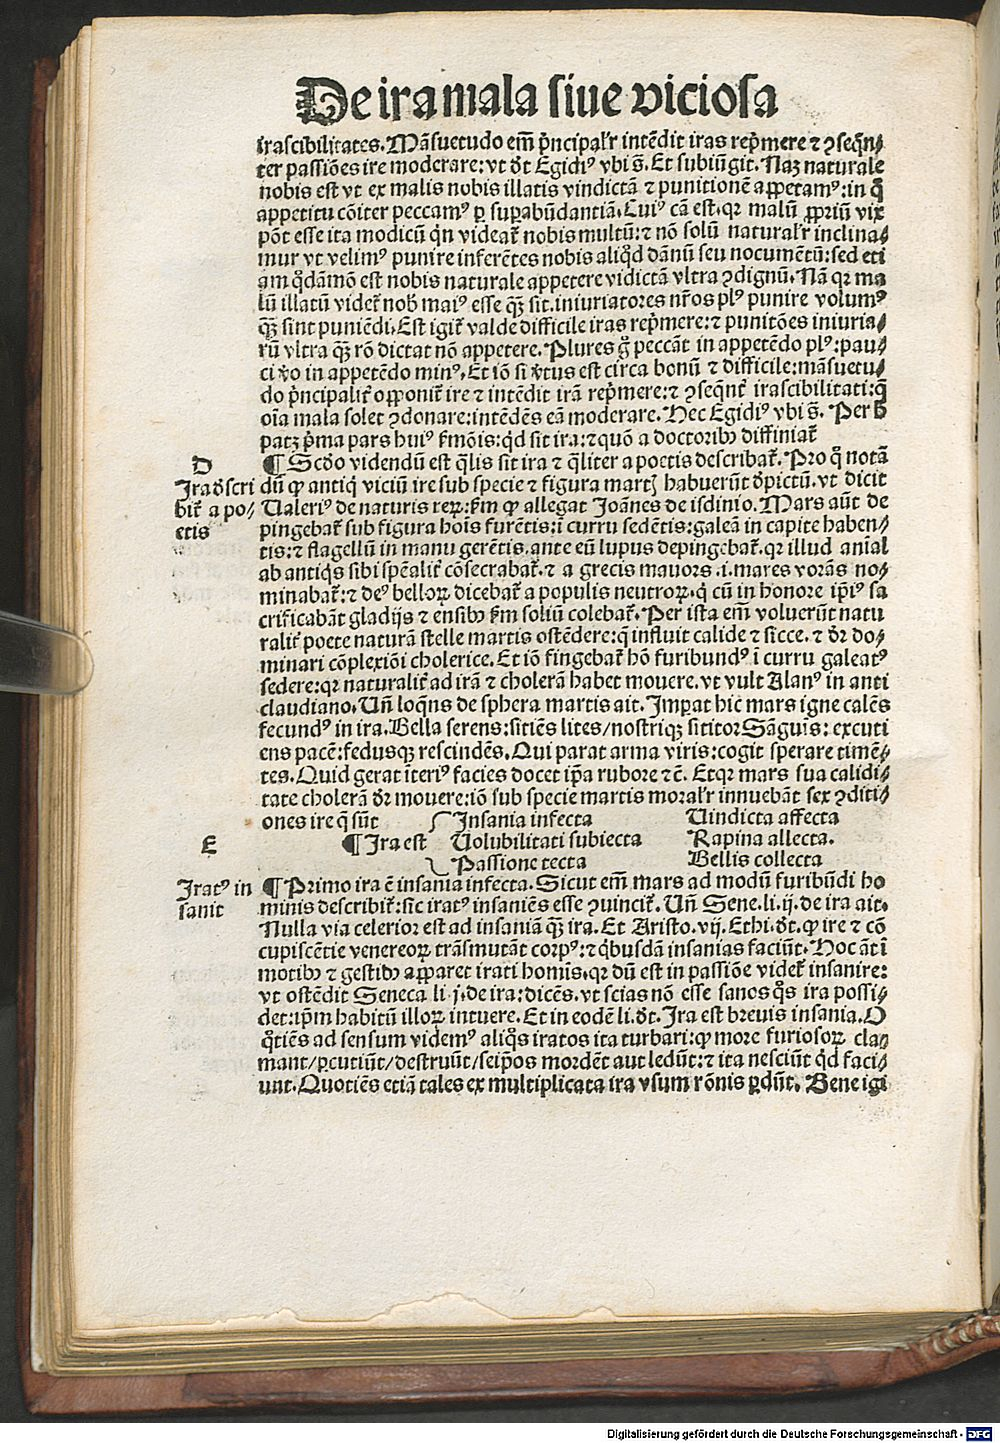 De ira mala siue viciosa
irascibilitates. Mãsuetudo em̃ p̃ncipal'r intẽdit iras rep̃mere ⁊ ꝯseq̃n/
ter passiões ire moderare: vt dr̃t Egidiꝰ vbi s̃. Et subiũgit. Naʒ naturale
nobis est vt ex malis nobis illatis vindictã ⁊ punitionẽ appetamꝰ: in q̃
appetitu cõiter peccamꝰ ꝑ suꝑabũdantiã. Cuiꝰ cã est. qꝛ malũ ꝓpriũ vix
põt esse ita modicũ qͥn videat̃ nobis multũ: ⁊ nõ solũ natural'r inclina/
mur vt velimꝰ punire inferẽtes nobis aliqͥd dãnũ seu nocumẽtũ: sed eti
am qͦdãmõ est nobis naturale appetere vidictã vltra ꝯdignũ. Nã qꝛ ma
lũ illatũ videt̃ nob̃ maiꝰ esse qʒ̃ sit. iniuriatores nr̃os plꝰ punire volumꝰ
qʒ̃ sint puniẽdi. Est igit̃ valde difficile iras rep̃mere: ⁊ punitões iniuria/
rũ vltra qʒ̃ rõ dictat nõ appetere. Plures g̃ peccãt in appetẽdo plꝰ: pau/
ci ṽo in appetẽdo minꝰ. Et iõ si ṽtus est circa bonũ ⁊ difficile: mãsuetu/
do p̃ncipalit̃ opponit̃ ire ⁊ intẽdit irã rep̃mere: ⁊ ꝯseq̃nt̃ irascibilitati: q̃
oĩa mala solet ꝯdonare: intẽdẽs eã moderare. Hec Egidiꝰ vbi s̃. Per h̃
patʒ p̃ma pars huiꝰ ẽmõis: qͥd sit ira: ⁊ quõ a doctoribꝰ diffiniat̃
D
¶ Scdo videndũ est q̃lis sit ira ⁊ q̃liter a poetis describat̃. Pro qͦ notã
Ira descri
dũ ꝙ antiqͥ viciũ ire sub specie ⁊ figura martꝭ habuerũt dep̃ictũ. vt dicit
bit̃ a po/
Ualeriꝰ de naturis reꝝ: ẽm ꝙ allegat Joãnes de isdinio. Mars aũt de
etis
pingebat̃ sub figura hoĩs furẽtis: ĩ curru sedẽtis: galeã in capite haben/
tis: ⁊ flagellũ in manu gerẽtis. ante eũ lupus depingebat̃. qꝛ illud anĩal
ab antiqͥs sibi spẽalit̃ cõsecrabat̃. ⁊ a grecis mauors .i. mares vorãs no/
minabat̃: ⁊ deꝰ belloꝝ dicebat̃ a populis neutroꝝ. qͥ cũ in honore ip̃iꝰ sa
crificabãt gladijs ⁊ ensibꝰ ẽm soliũ colebat̃. Per ista em̃ voluerũt natu
ralit̃ poete naturã stelle martis ostẽdere: q̃ influit calide ⁊ sicce. ⁊ dr̃ do/
minari cõplexiõi cholerice. Et iõ fingebat̃ hõ furibundꝰ ĩ curru galeatꝰ
sedere: qꝛ naturalit̃ ad irã ⁊ cholerã habet mouere. vt vult Alanꝰ in anti
claudiano. Un̄ loq̃ns de sphera martis ait. Imꝑat hic mars igne calẽs
fecundꝰ in ira. Bella serens: sitiẽs lites/ nostriqʒ sititor Sãguĩs: excuti
ens pacẽ: fedusqʒ rescindẽs. Qui parat arma viris: cogit sperare timẽ/
tes. Quid gerat ĩteriꝰ facies docet ip̃a rubore ⁊ cẽ. Et qꝛ mars sua calidi/
tate cholerã dr̃ mouere: iõ sub specie martis moral'r innuebãt sex ꝯditi/
ones ire q̃ sũt
Insania infecta
Uindicta affecta
E
¶ Ira est
Uolubilitati subiecta
Rapina allecta.
Passione tecta
Bellis collecta
Iratꝰ in
¶ Primo ira ẽ insania infecta. Sicut em̃ mars ad modũ furibũdi ho
sanit
minis describit̃: sic iratꝰ insaniẽs esse ꝯuincit̃. Un̄ Sene. li. ij. de ira ait.
Nulla via celerior est ad insaniã qʒ̃ ira. Et Aristo. vij. Ethi. dr̃t. ꝙ ire ⁊ cõ
cupiscẽtie venereoꝝ trãsmutãt corpꝰ: ⁊ qͥbusdã insanias faciũt. Hoc aũt ĩ
motibꝰ ⁊ gestibꝰ apparet irati homĩs. qꝛ dũ est in passiõe videt̃ insanire:
vt ostẽdit Seneca li. j. de ira: dicẽs. vt scias nõ esse sanos qͦs ira possi/
det: ip̃m habitũ illoꝝ intuere. Et in eodẽ li. dr̃t. Ira est breuis insania. O
qͦtiẽs ad sensum videmꝰ aliqͦs iratos ita turbari: ꝙ more furiosoꝝ cla/
mant/ ꝑcutiũt/ destruũt/ seip̃os mordẽt aut ledũt: ⁊ ita nesciũt qͥd faci/
unt. Quotiẽs etiã tales ex multiplicata ira vsum rõnis ꝑdũt. Bene igi
Digitalisierung gefördert durch die Deutsche Forschungsgemeinschaft - DFG